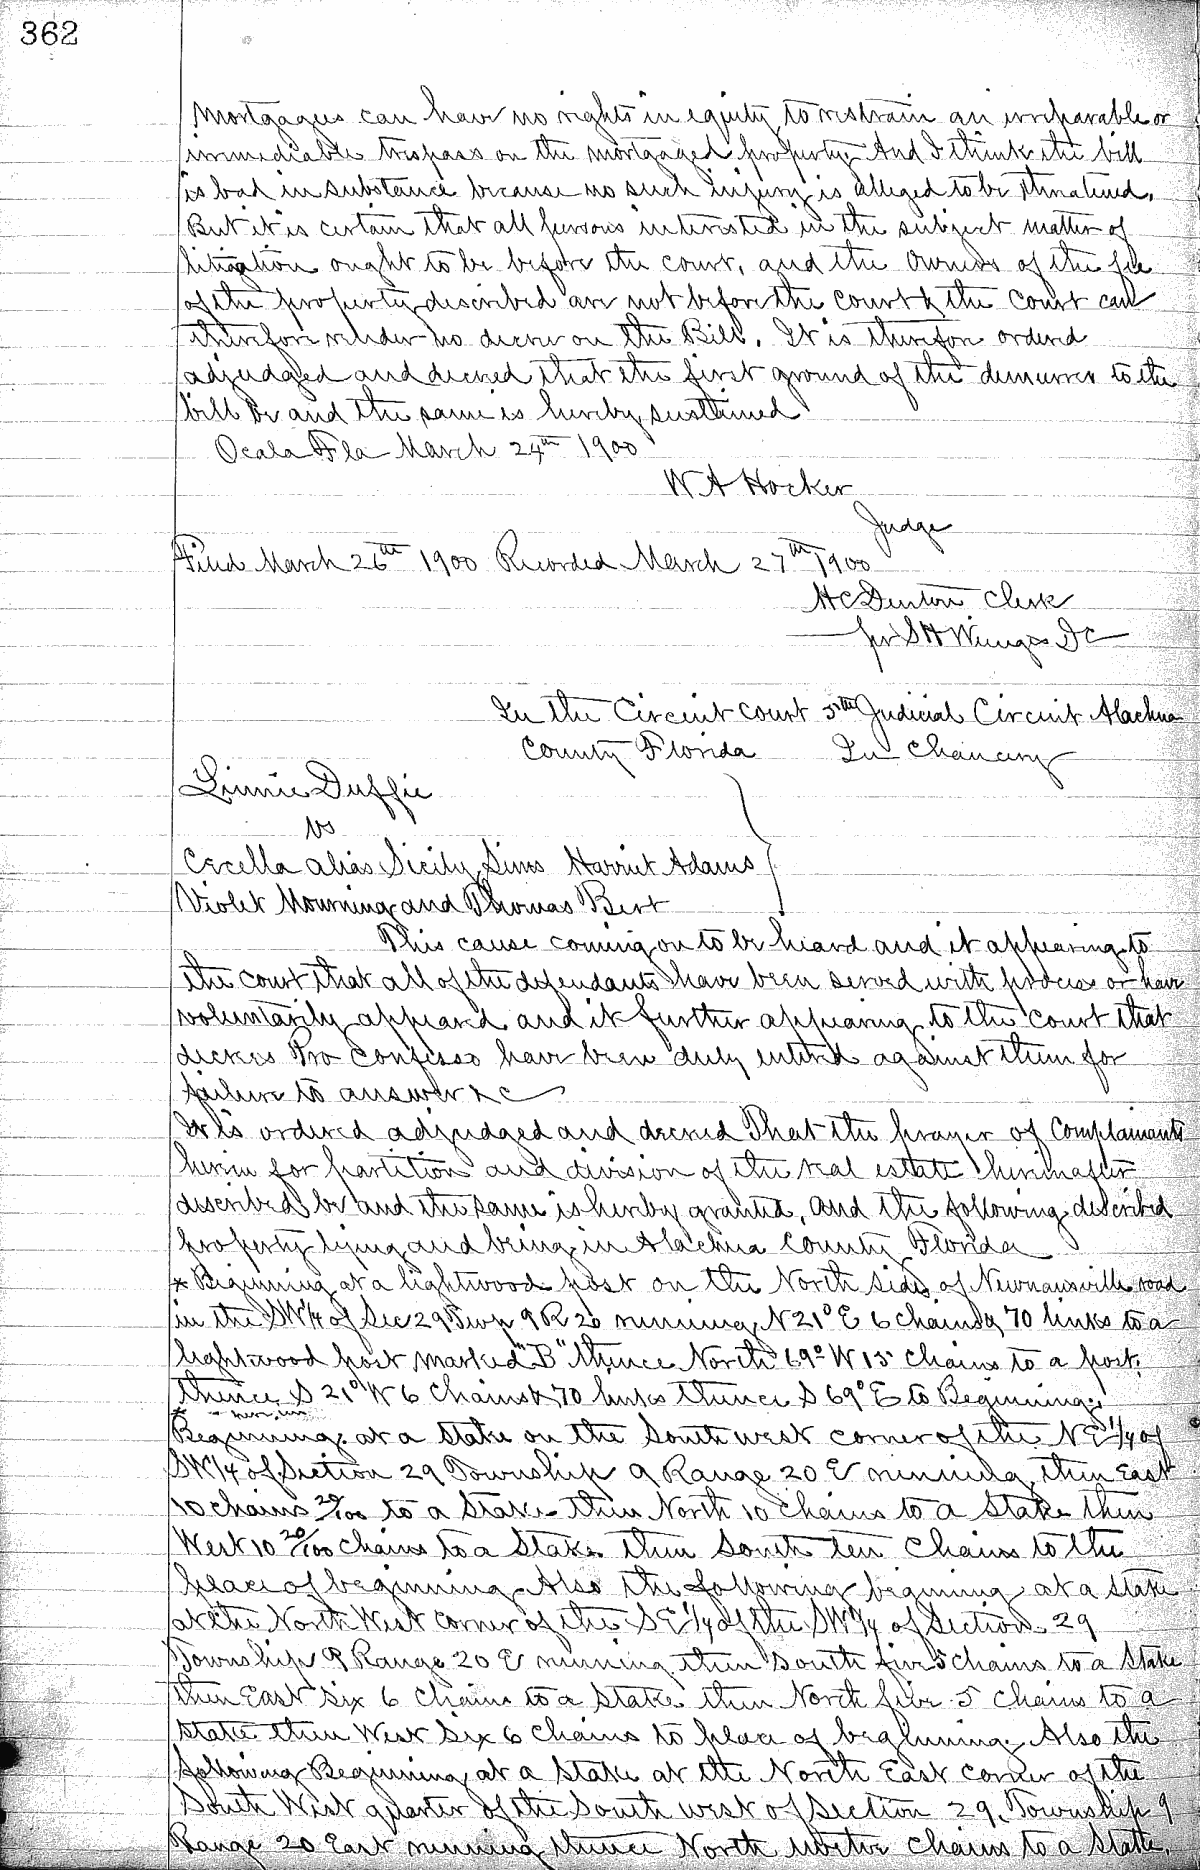 362
Mortgagees can have no rights in equity to restrain an irreparable or
irremediable trespass on the mortgaged property. And I think the bill
is bad in substance because no such injury is alleged to be threatened.
But it is certain that all persons interested in the subject matter of
litigation ought to be before the court, and the Owners of the fee
of the property described are not before the court & the Court can
therefore render no decree on the Bill. It is therefore ordered
adjudged and decreed that the first ground of the demurrer to the
bill be and the same is hereby sustained
Ocala Fla March 24th 1900
W A Hocker
Judge
Filed March 26th 1900 Recorded March 27th 1900
H C Denton Clerk
per S H Wienges D C
In the Circuit Court 5th Judicial Circuit Alachua
County Florida In Chancery
Linnie Duffie
vs
Cecella alias Sicily Sims Harriet Adams
Violet Mourning and Thomas Bert
This cause coming on to be heard and it appearing to
the court that all of the defendants have been served with process or have
voluntarily appeared and it further appearing to the Court that
decrees Pro Confesso have been duly entered against them for
failure to answer &c
It is ordered adjudged and decreed That the prayer of Complainants
herein for partition and division of the real estate hereinafter
described be and the same is hereby granted, and the following described
property lying and being in Alachua County Florida
* Beginning at a lightwood post on the North side of Newnansville road
in the SW¼ of Sec 29 Twp 9 R 20 running N 21° E 6 chains & 70 links to a
lightwood post marked "B" thence North 69° W 15 Chains to a post,
thence S 21° W 6 Chains & 70 links thence S 69° E to Beginning;
Beginning at a Stake on the South west corner of the NE¼ of
SW¼ of Section 29 Township 9 Range 20 E running then East
10 chains 20/100 to a Stake then North 10 chains to a Stake then
West 10 20/100 chains to a Stake then South ten Chains to the
place of beginning. Also the following begining at a Stake
at the North West corner of the SE¼ of the SW¼ of Section 29
Township 9 Range 20 E running then South five 5 chains to a Stake
then East six 6 Chains to a Stake then North five 5 chains to a
state then West Six 6 chains to place of beginning. Also the
following Beginning at a Stake at the North East corner of the
South West quarter of the South west of Section 29, Township 9
Range 20 East running thence North twelve chains to a Stake,